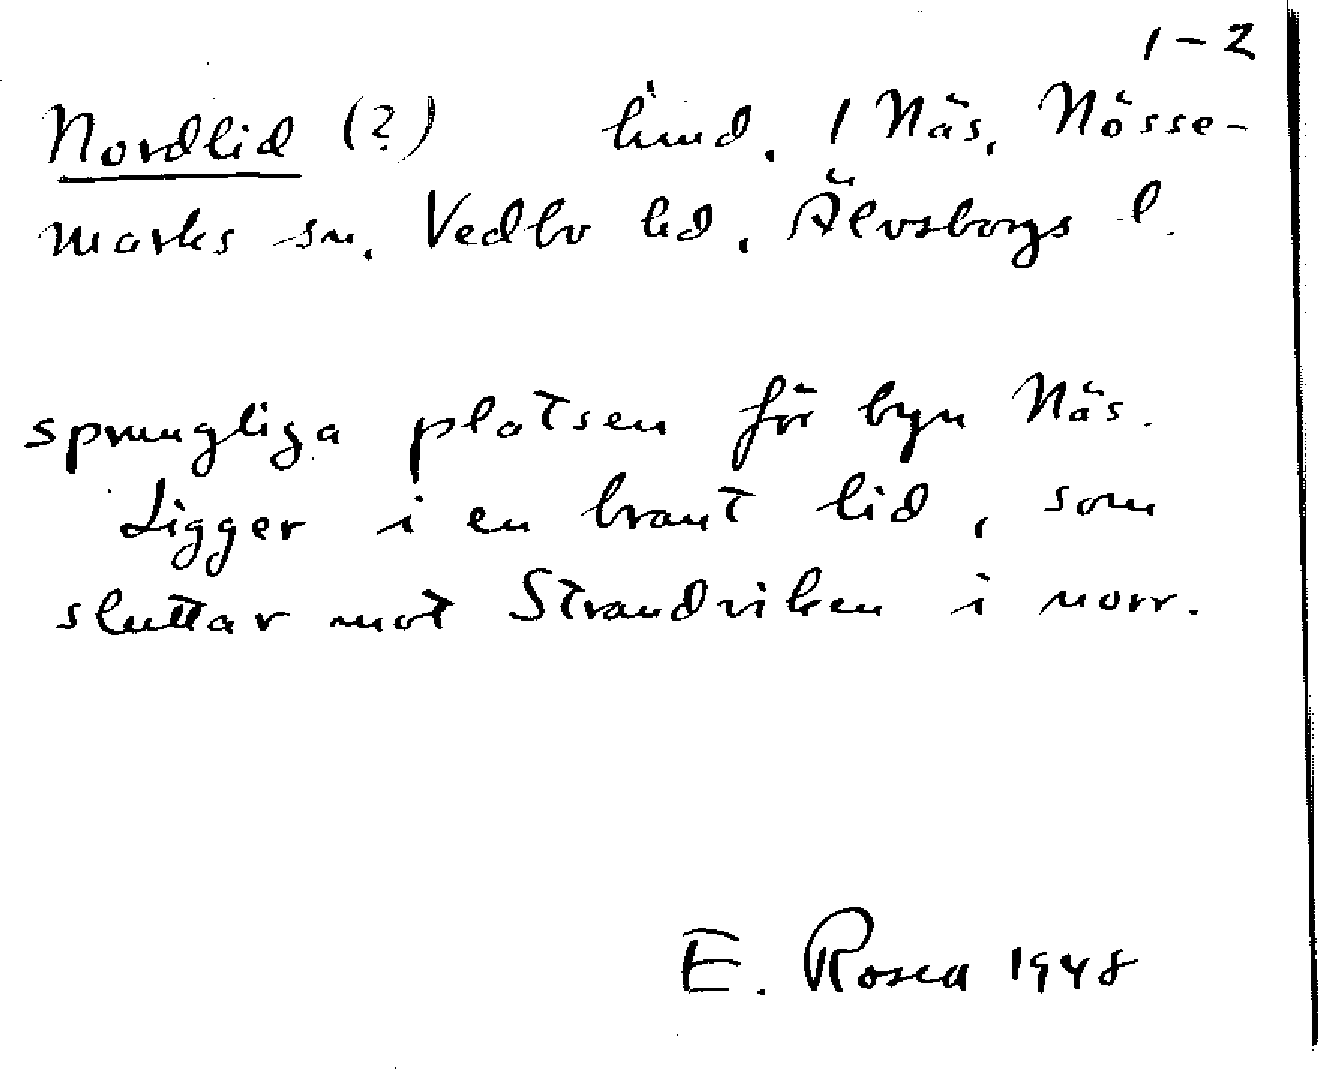 1-2
Nordlid (?) lind. 1 Näs, Nösse-
marks sn. Vedbo hd. Älvsborgs l.
sprungliga platsen för byn Näs.
Ligger i en brant lid, som
sluttar mot Strandviken i norr.
E. Rosea 1948